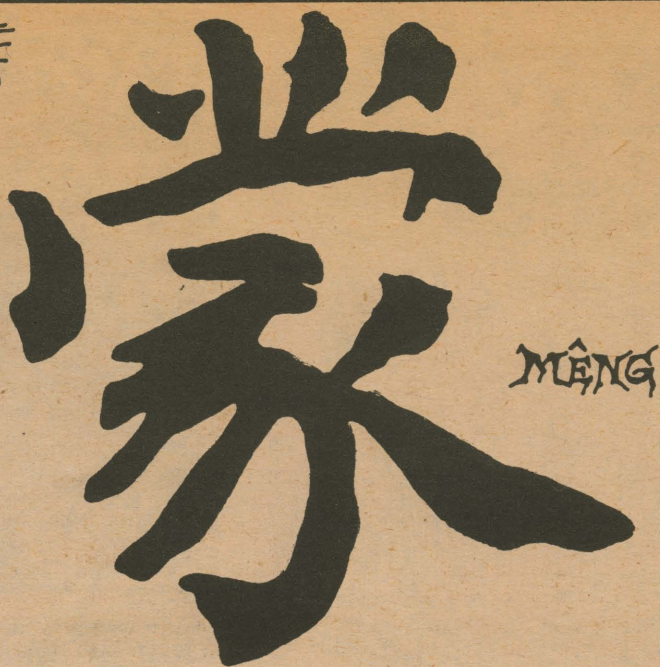 蒙
MÊNG